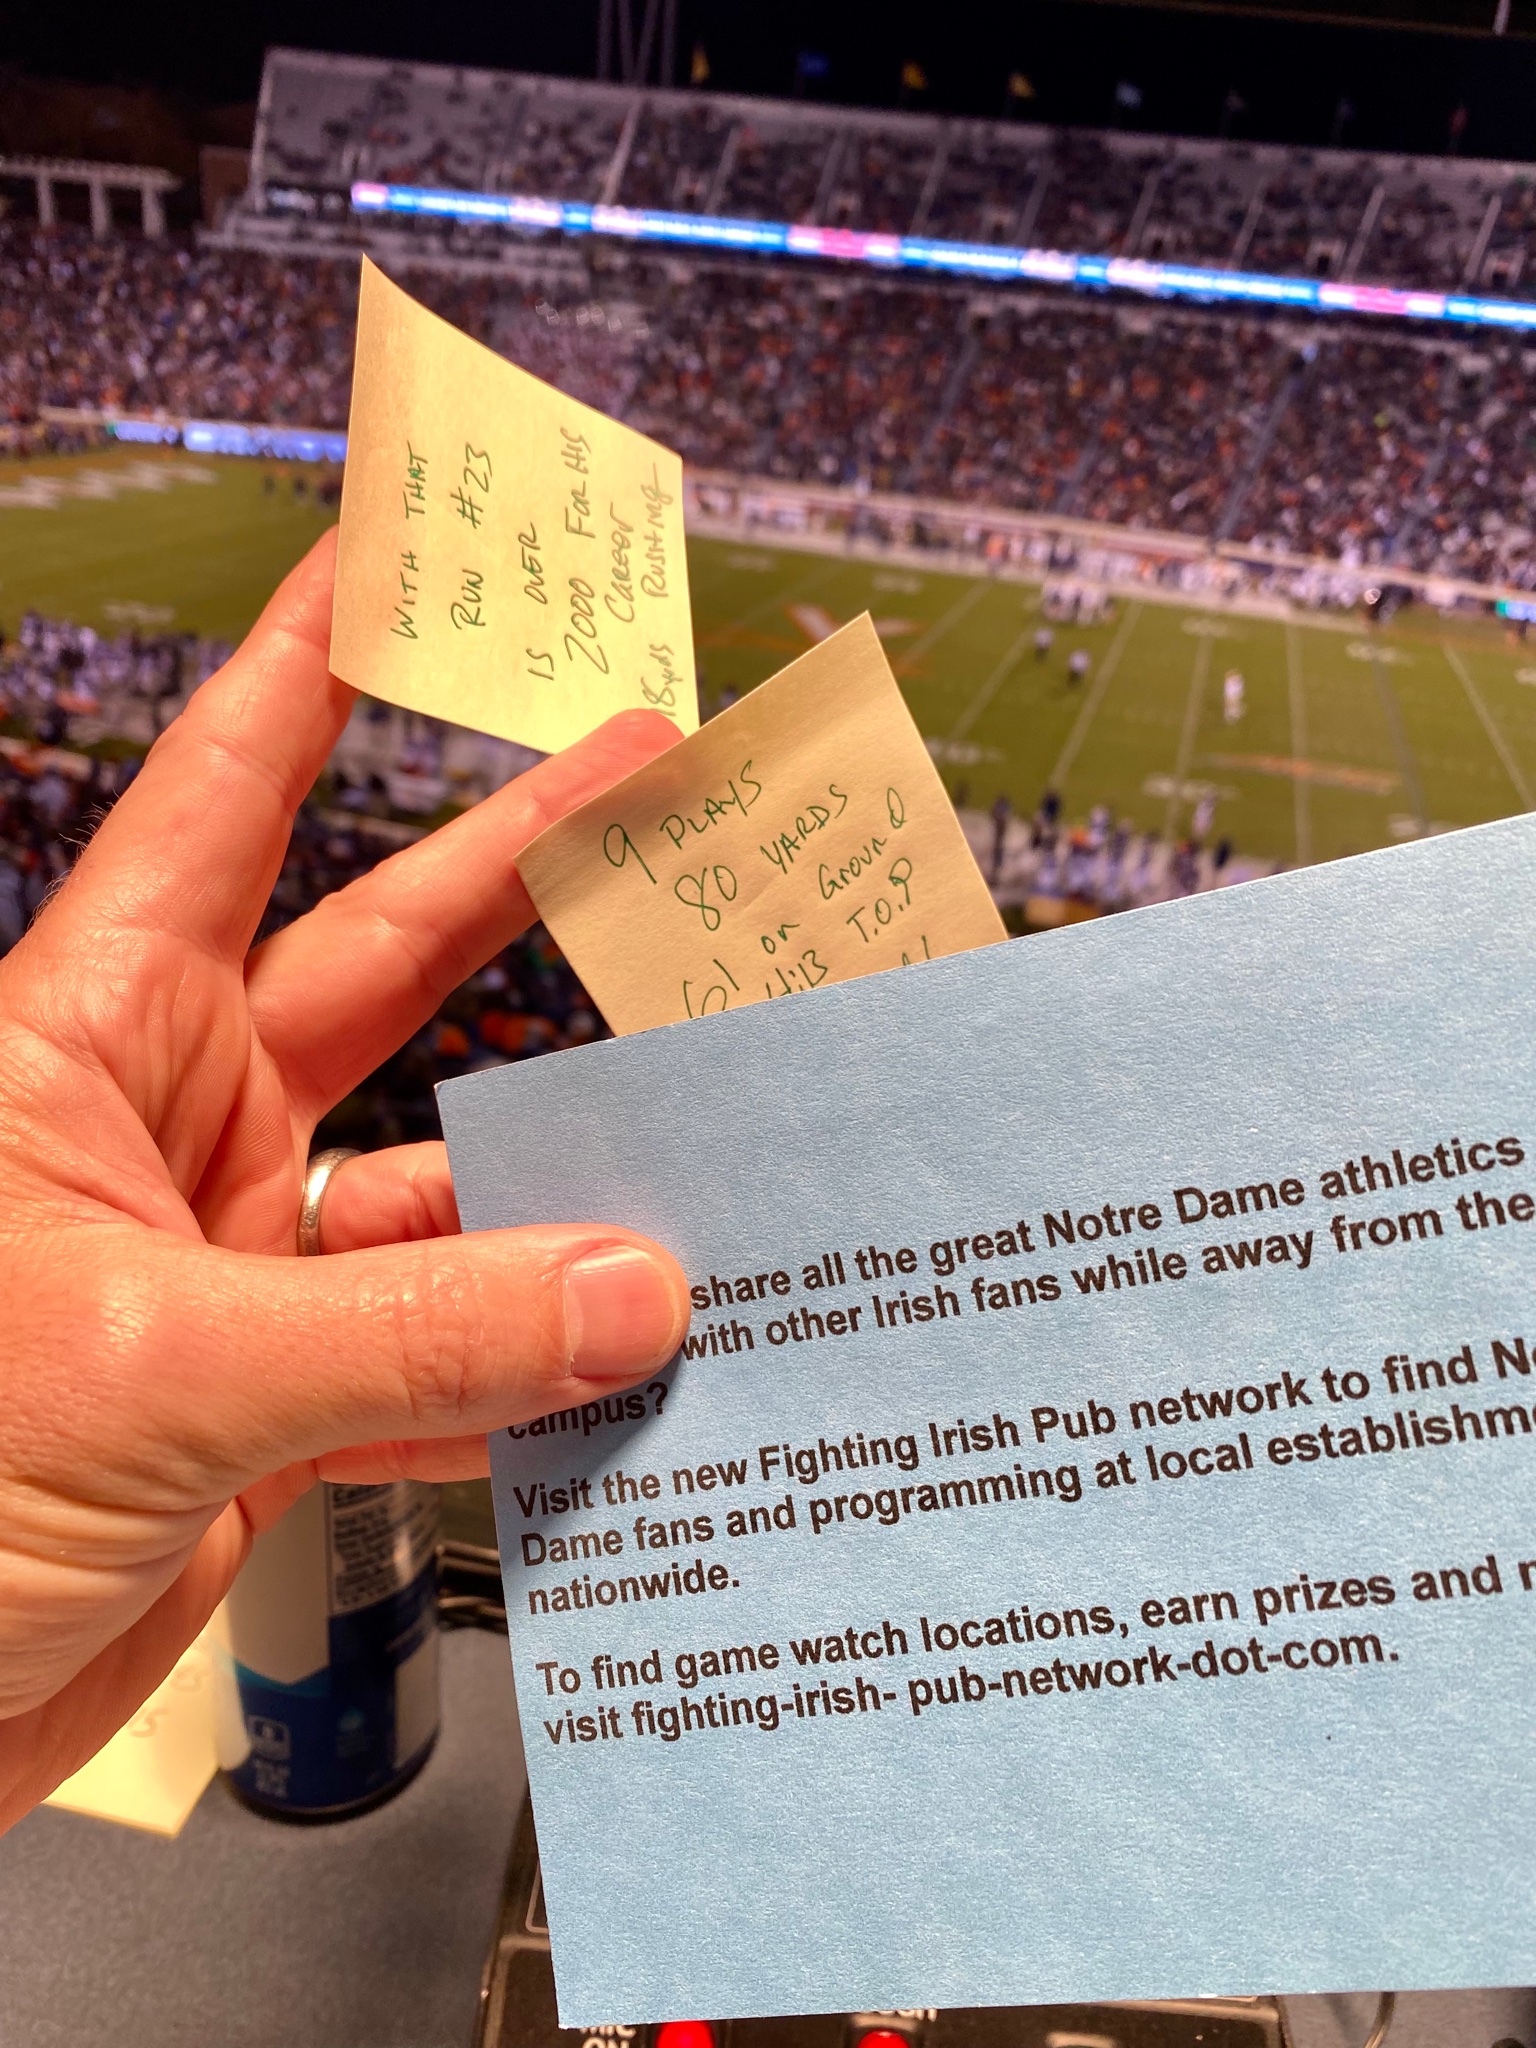 WITH THAT
RUN #23
IS OVER
2000 FOR HIS
CAREER
18 yds RUSHING
9 PLAYS
80 YARDS
61 on Ground
4:13 T.O.P
share all the great Notre Dame athletics
with other Irish fans while away from the
campus?
Visit the new Fighting Irish Pub network to find No
Dame fans and programming at local establishme
nationwide.
To find game watch locations, earn prizes and
visit fighting-irish- pub-network-dot-com.
MIC
ON